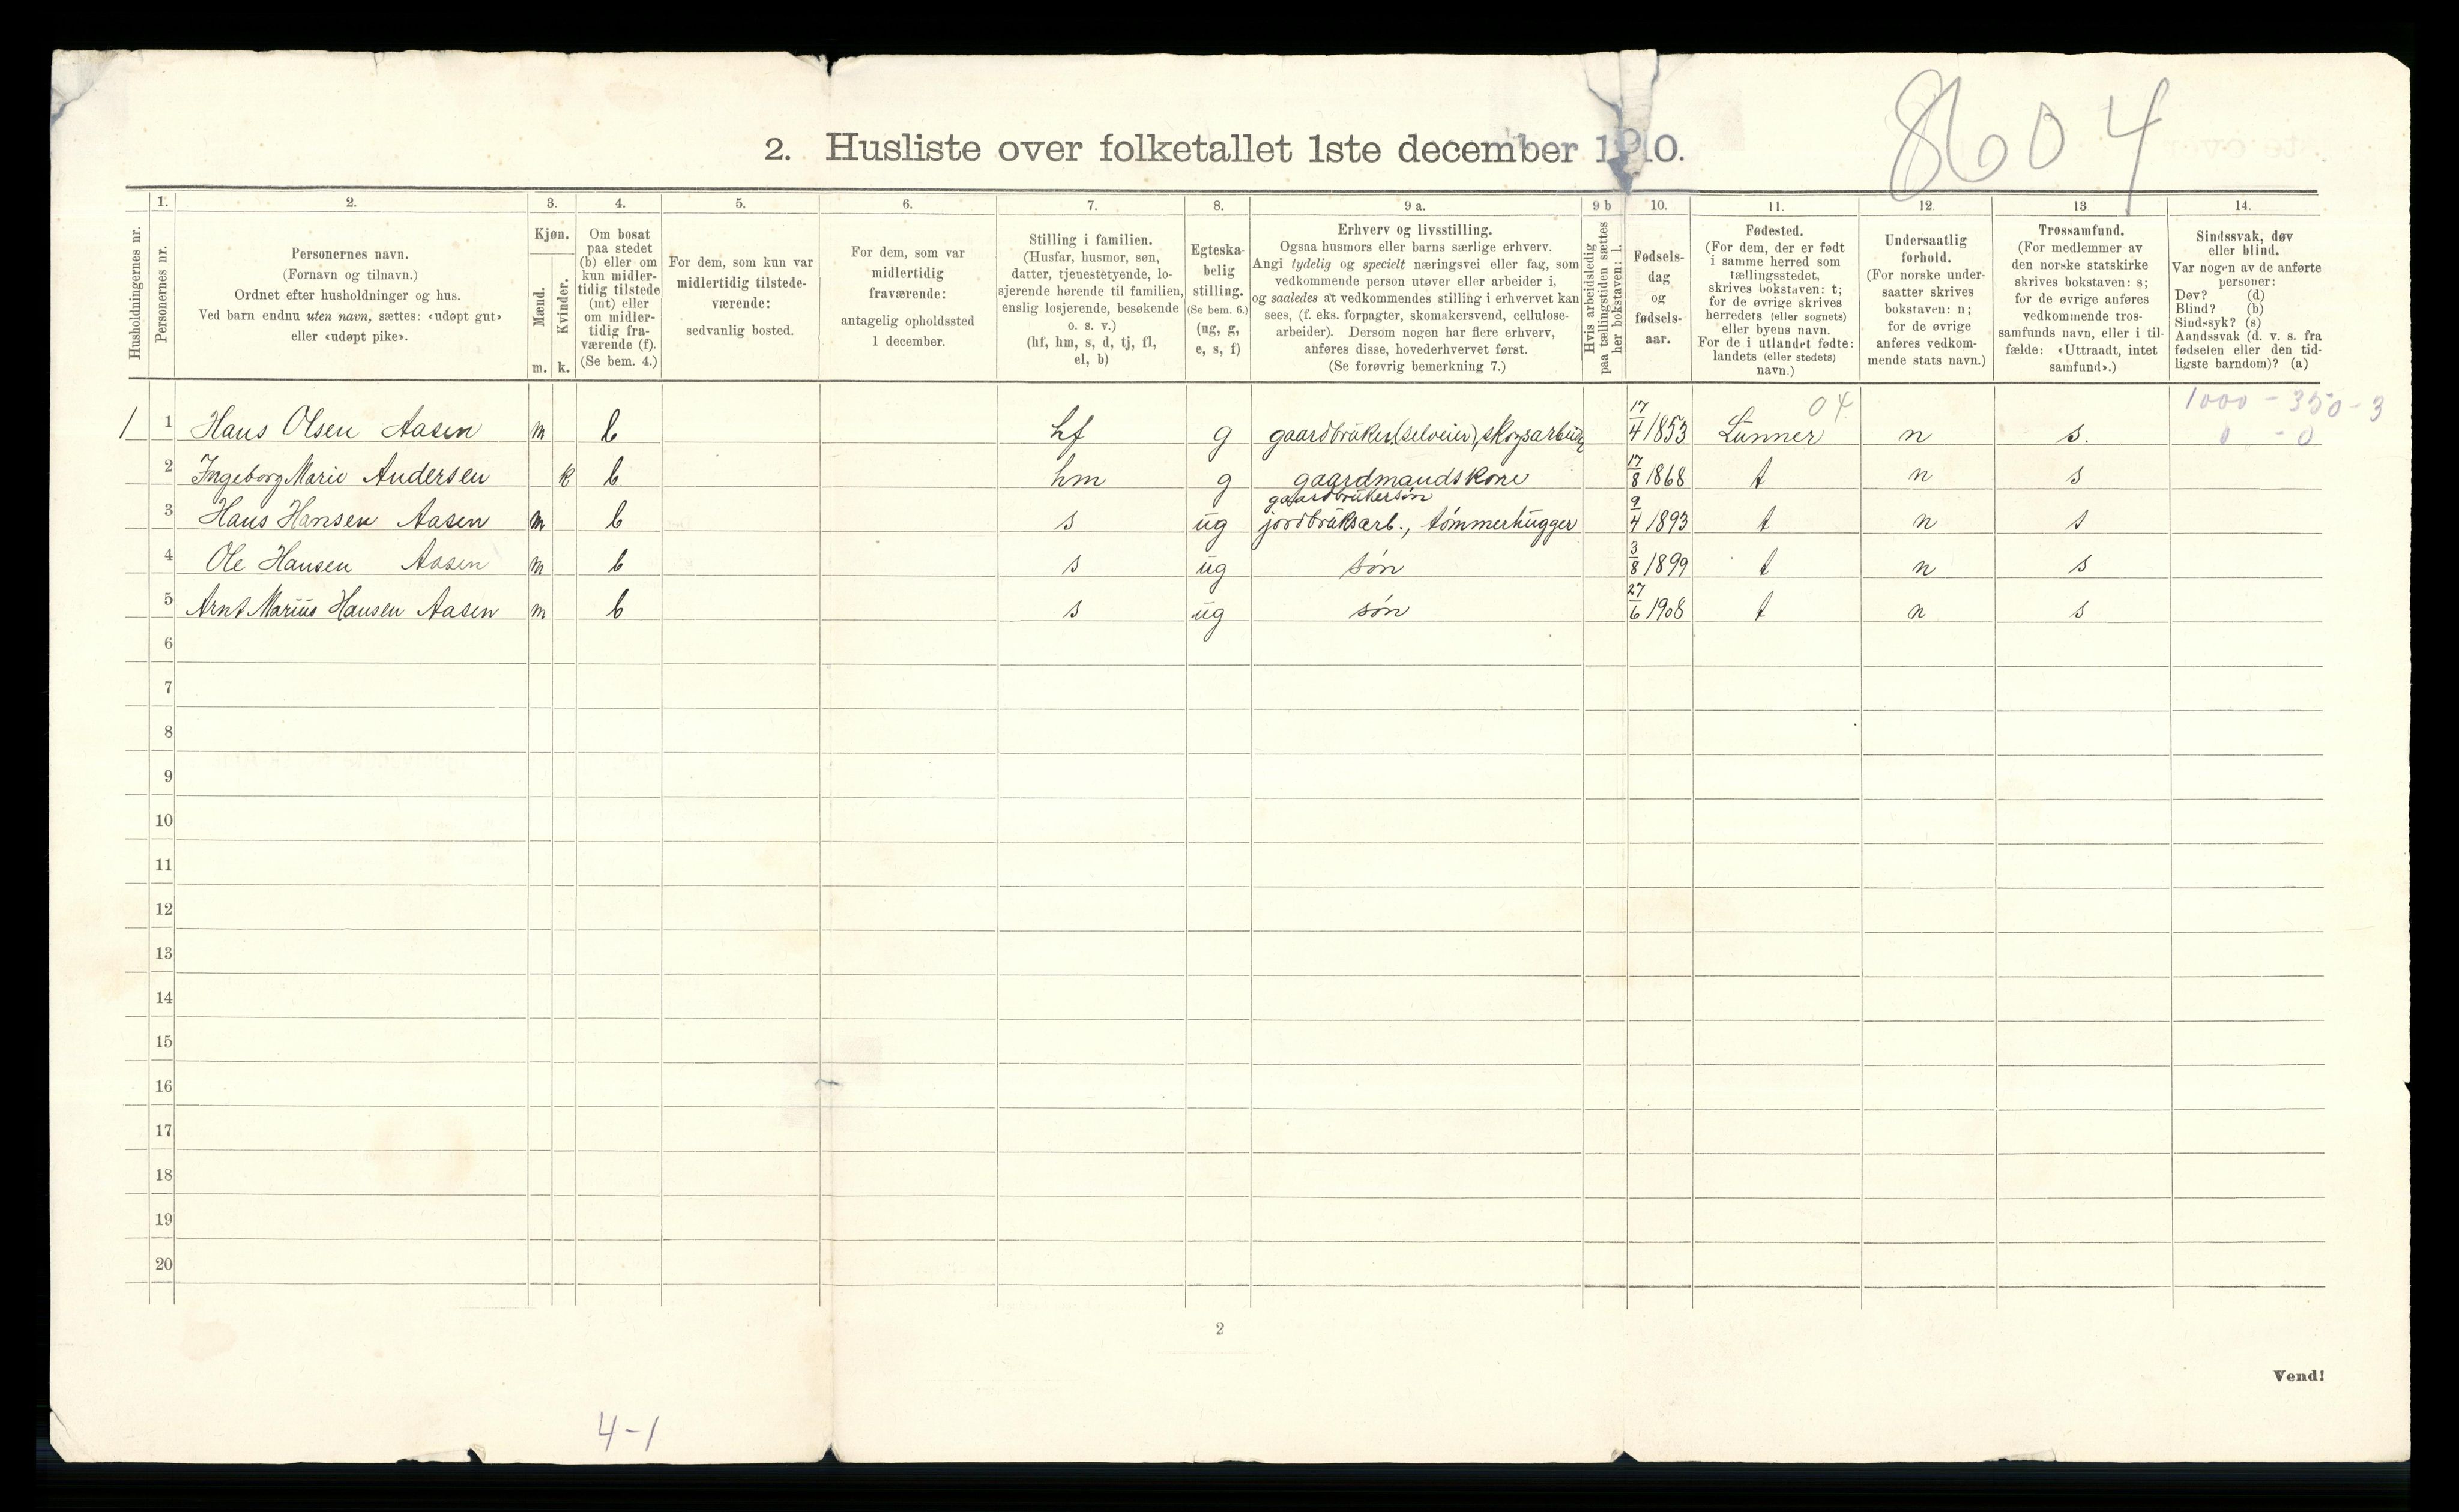 8604
2. Husliste over folketallet 1ste december 1910.
Husholdningernes nr.
1.
Personernes nr.
2.
Personernes navn.
(Fornavn og tilnavn.)
Ordnet efter husholdninger og hus.
Ved barn endnu uten navn, sættes: «udøpt gut»
eller «udøpt pike».
3.
Kjøn.
Mænd.
Kvinder.
m. k.
4.
Om bosat
paa stedet
(b) eller om
kun midler-
tidig tilstede
(mt) eller
om midler-
tidig fra-
værende (f).
(Se bem. 4.)
5.
For dem, som kun var
midlertidig tilstede-
værende:
sedvanlig bosted.
6.
For dem, som var
midlertidig
fraværende:
antagelig opholdssted
1 december.
7.
Stilling i familien.
(Husfar, husmor, søn,
datter, tjenestetyende, lo-
sjerende hørende til familien,
enslig losjerende, besøkende
o. s. v.)
(hf, hm, s, d, tj, fl,
el, b)
8.
Egteska-
belig
stilling.
(Se bem. 6.)
(ug, g,
e, s, f)
9 a.
Erhverv og livsstilling.
Ogsaa husmors eller barns særlige erhverv.
Angi tydelig og specielt næringsvei eller fag, som
vedkommende person utøver eller arbeider i,
og saaledes at vedkommendes stilling i erhvervet kan
sees, (f. eks. forpagter, skomakersvend, cellulose-
arbeider). Dersom nogen har flere erhverv,
anføres disse, hovederhvervet først.
(Se forøvrig bemerkning 7.)
9 b
Hvis arbeidsledig
paa tællingstiden sættes
her bokstaven: l.
10.
Fødsels-
dag
og
fødsels-
aar.
11.
Fødested.
(For dem, der er født
i samme herred som
tællingsstedet,
skrives bokstaven: t;
for de øvrige skrives
herredets (eller sognets)
eller byens navn.
For de i utlandet fødte:
landets (eller stedets)
navn.)
12.
Undersaatlig
forhold.
(For norske under-
saatter skrives
bokstaven: n;
for de øvrige
anføres vedkom-
mende stats navn.)
13
Trossamfund.
(For medlemmer av
den norske statskirke
skrives bokstaven: s;
for de øvrige anføres
vedkommende tros-
samfunds navn, eller i til-
fælde: «Uttraadt, intet
samfund».)
14.
Sindssvak, døv
eller blind.
Var nogen av de anførte
personer:
Døv? (d)
Blind? (b)
Sindssyk? (s)
Aandssvak (d. v. s. fra
fødselen eller den tid-
ligste barndom)? (a)
04 1000 - 350 - 3
1 1 Hans Olsen Aasen m b hf g gaardbruker (selveier), skogsarbeider 17/4 1853 Lunner n s. 0 - 0
2 Ingeborg Marie Andersen k b hm g gaardmandskone 17/8 1868 t n s
gaardbrukersøn
3 Hans Hansen Aasen m b s ug jordbruksarb., tømmerhugger 9/4 1893 t n s
4 Ole Hansen Aasen m b s ug søn 3/8 1899 t n s
5 Arnt Marius Hansen Aasen m b s ug søn 27/6 1908 t n s
6
7
8
9
10
11
12
13
14
15
16
17
18
19
20
2
Vend!
4-1